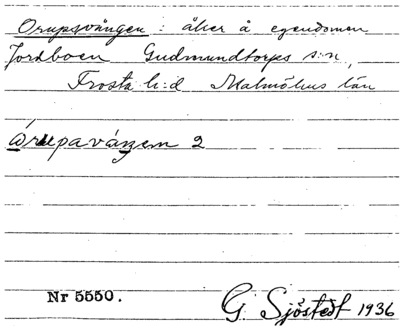 Orupsvången : åker å egendomen
Jordboen Gudmundtorps s:n,
Frosta h:d Malmöhus län
òrupaváŋŋen 2
Nr 5550.
G. Sjöstedt 1936